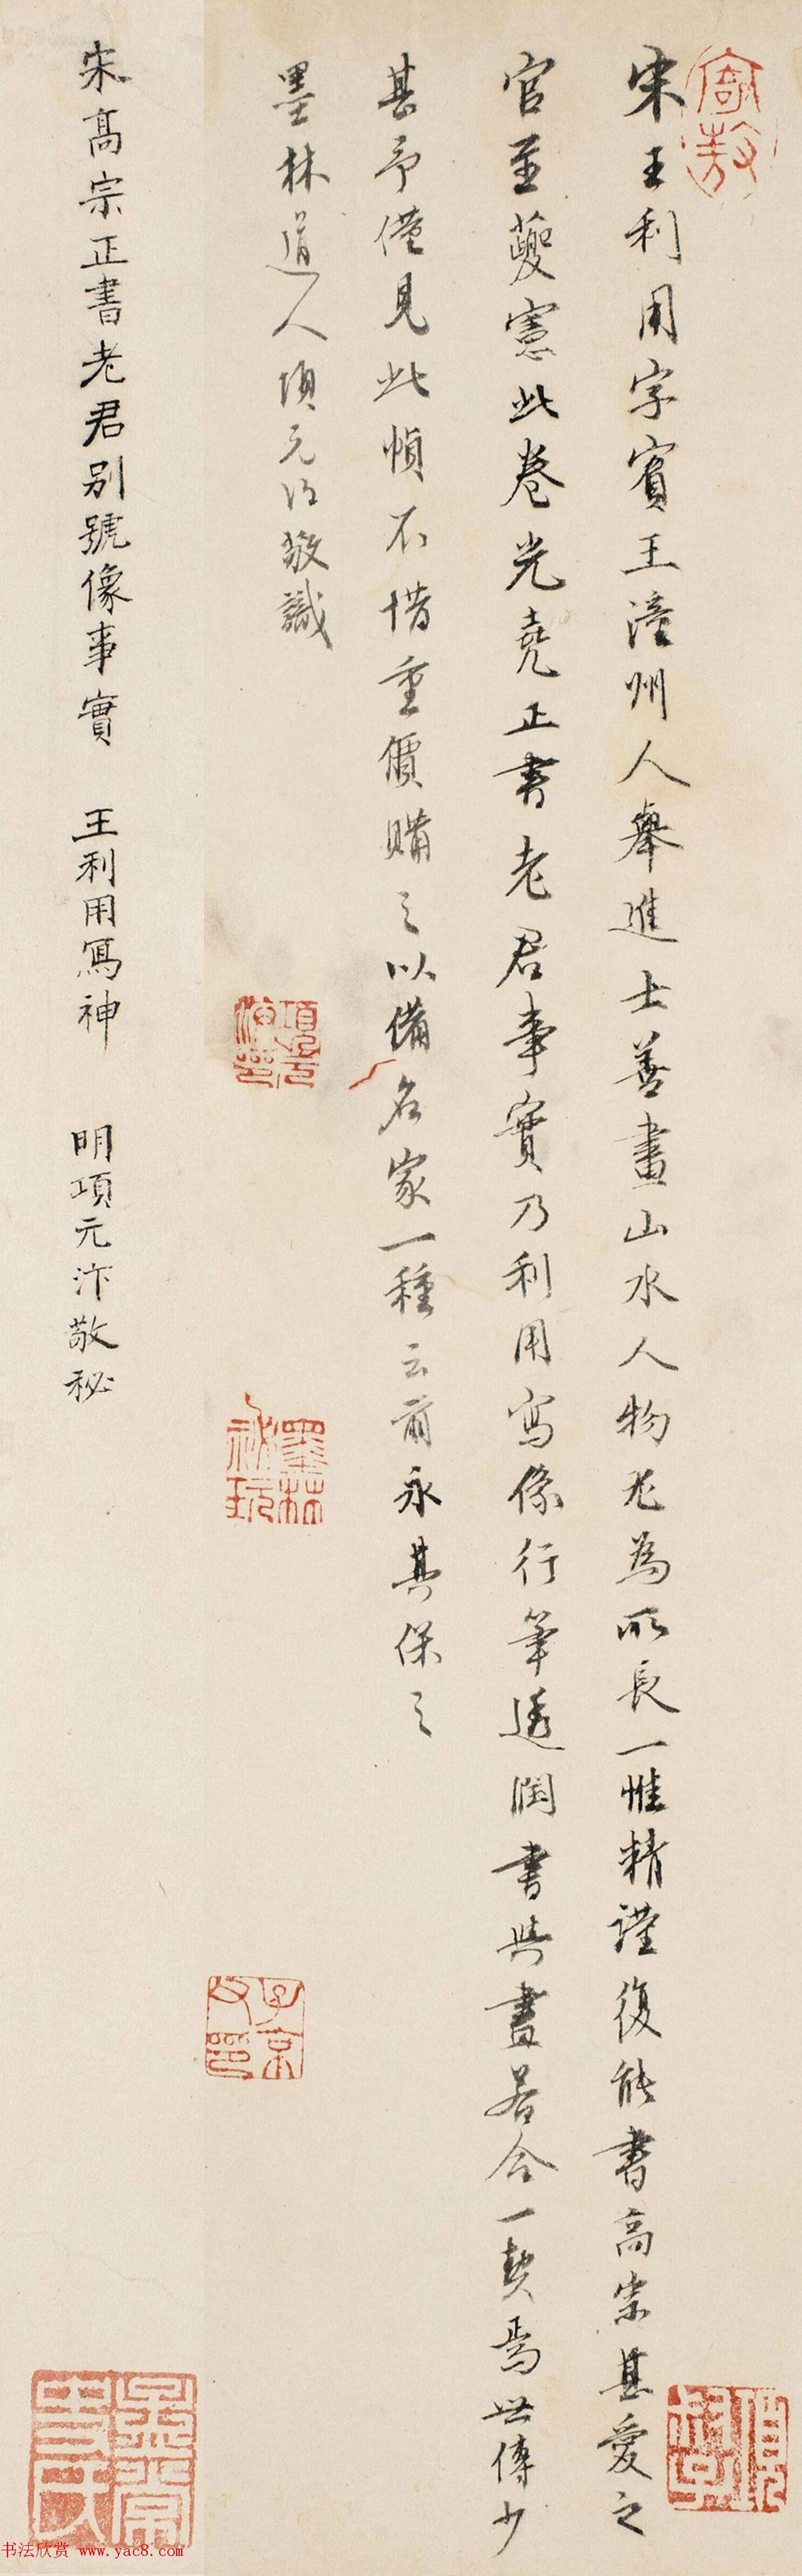 宋王利用字賓王潼州人舉進士善畫山水人物尤為所長一惟精謹復能書高宗甚愛之
官至夔憲此卷光堯正書老君事實乃利用寫像行筆透潤書與畫若合一契焉世傳少
甚予僅見此幀不惜重價購之以備名家一種云爾永其保之
墨林道人項元汴敬識
宋高宗正書老君別號像事實 王利用寫神 明項元汴敬秘
項元汴印
墨林祕玩
子京父印
書法欣賞 www.yac8.com